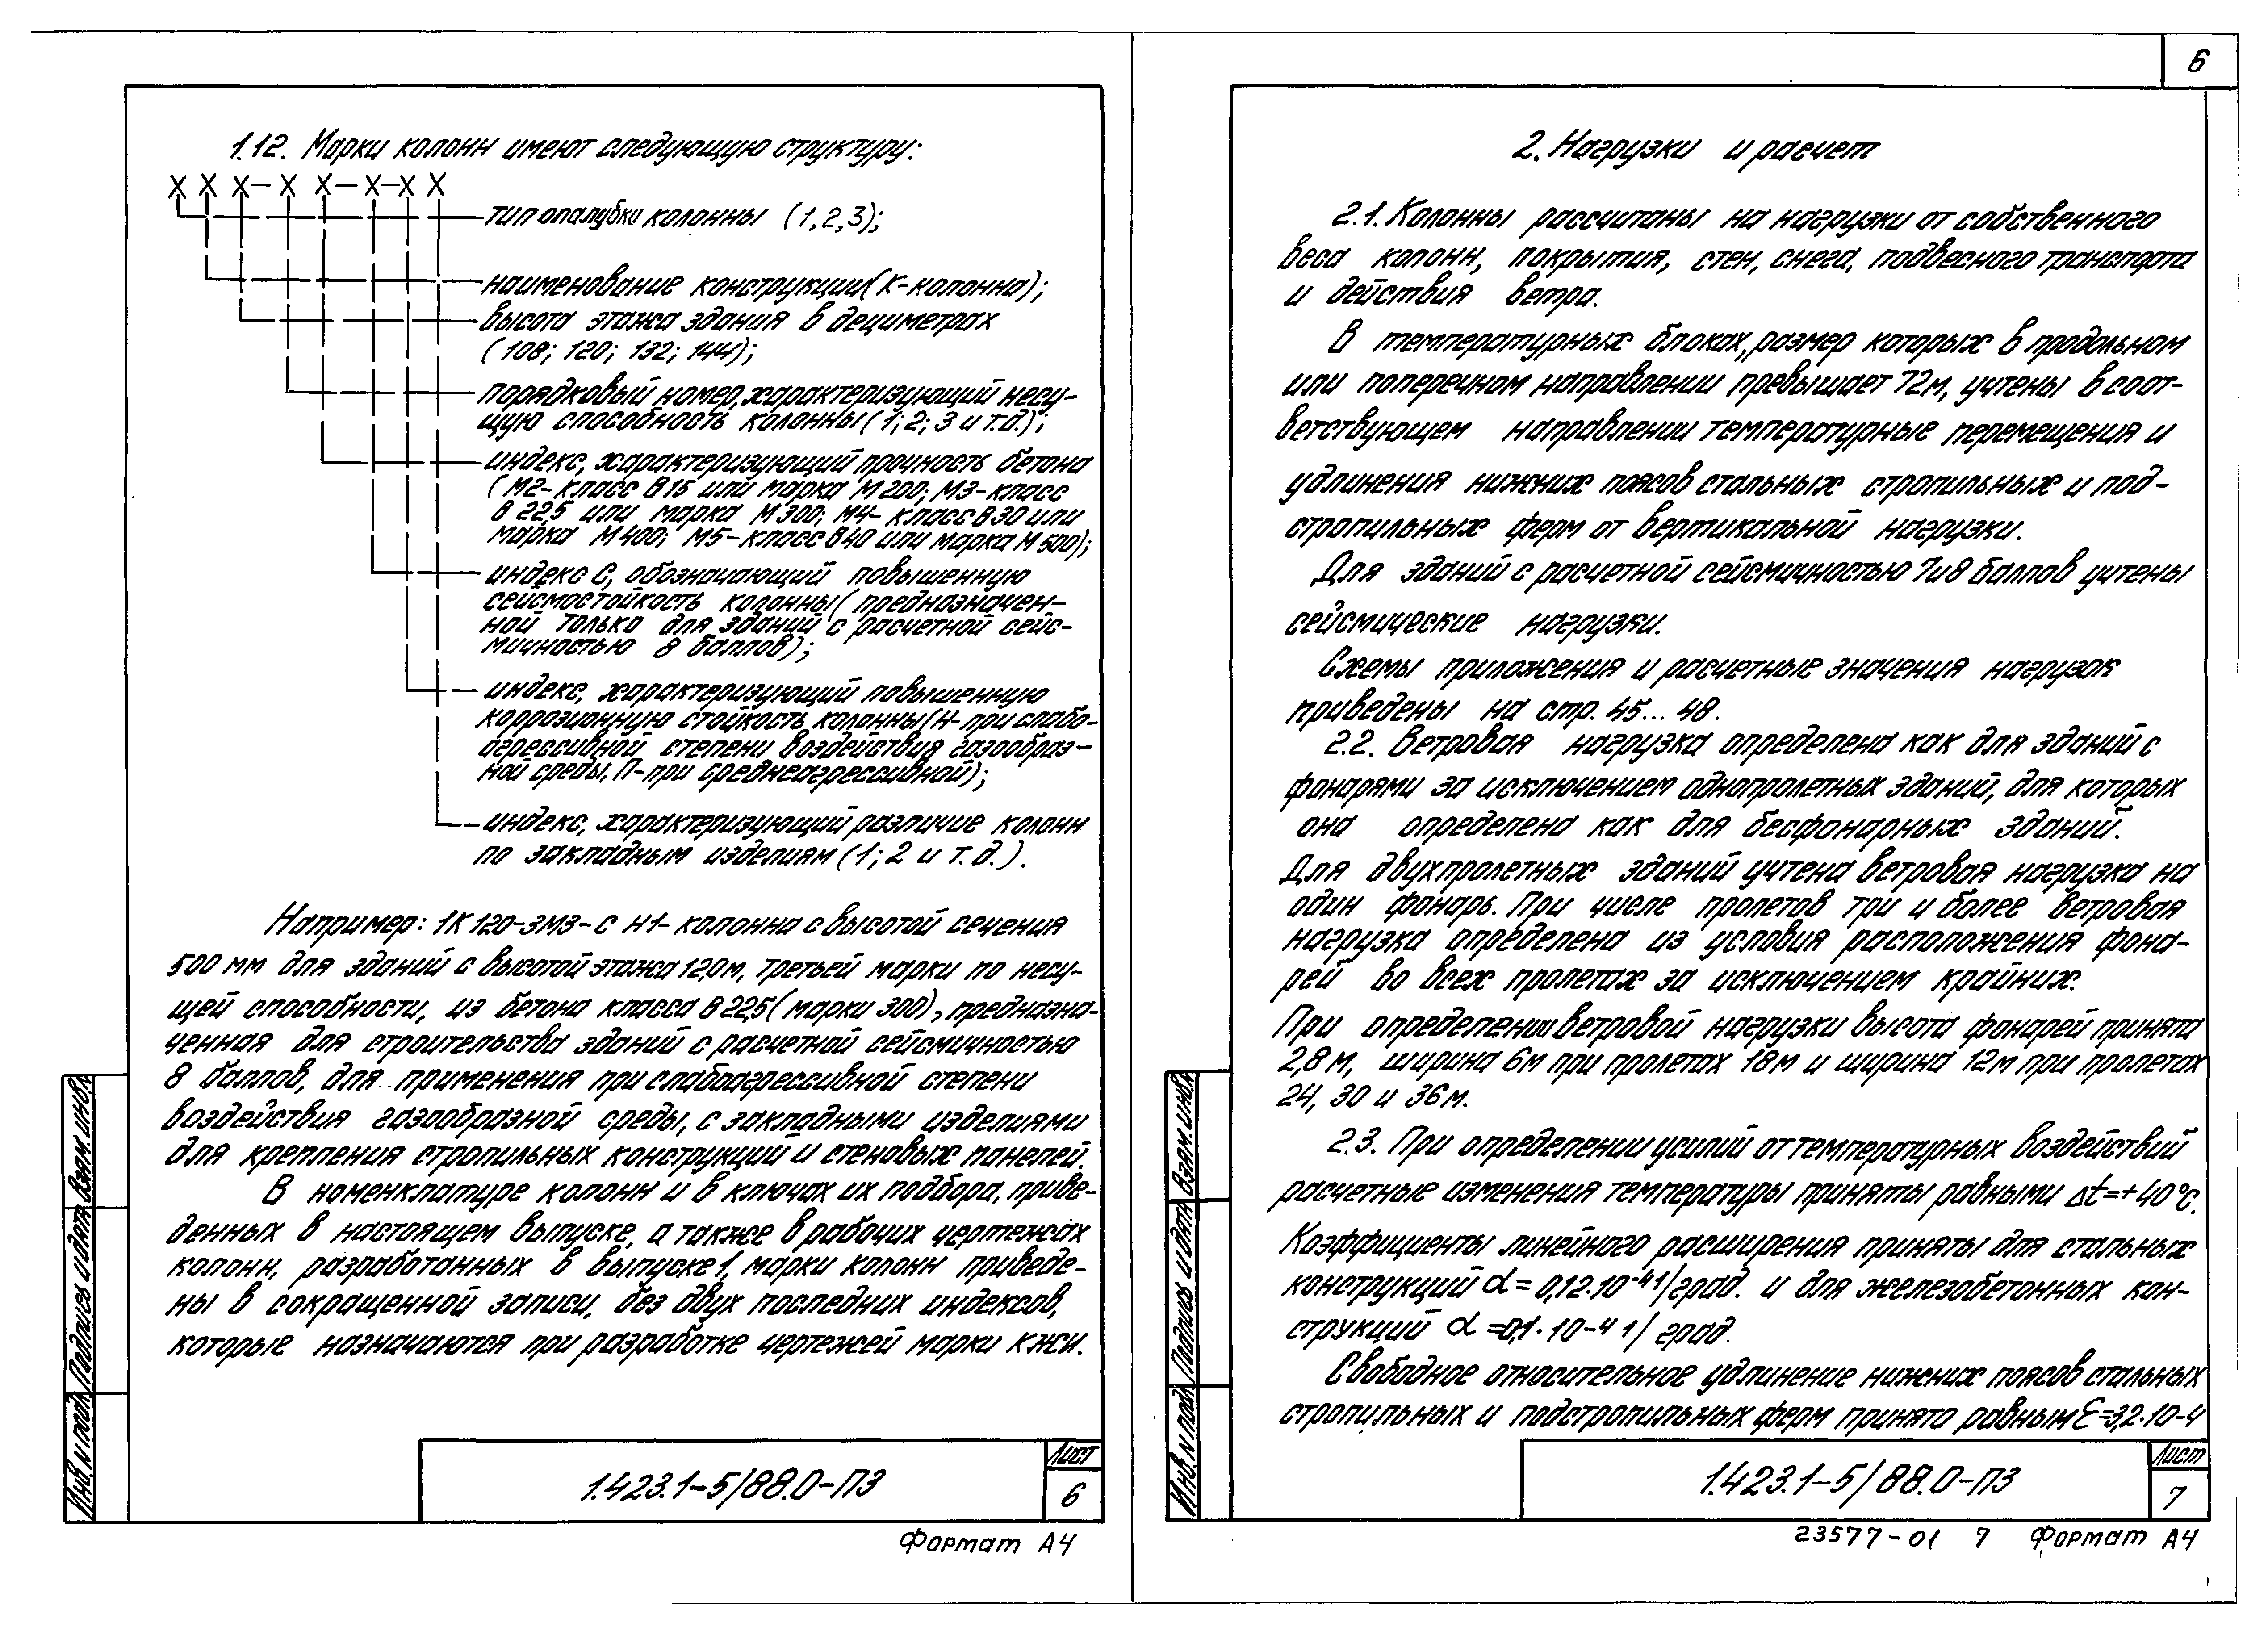 6
1.12. Марки колонн имеют следующую структуру:
Х Х Х – Х Х – Х – Х Х
тип опалубки колонны (1,2,3);
наименование конструкции (К-колонна);
высота этажа здания в дециметрах
(108; 120; 132; 144);
порядковый номер, характеризующий несу-
щую способность колонны (1; 2; 3 и т.д.);
индекс, характеризующий прочность бетона
(М2- класс В15 или марка М200; М3-класс
В 22,5 или марка М300; М4- класс В30 или
марка М400; М5-класс В40 или марка М500);
индекс С, обозначающий повышенную
сейсмостойкость колонны (предназначен-
ной только для зданий с расчетной сейс-
мичностью 8 баллов);
индекс, характеризующий повышенную
коррозионную стойкость колонны (Н- при слабо-
агрессивной степени воздействия газообраз-
ной среды, П- при среднеагрессивной);
индекс, характеризующий различие колонн
по закладным изделиям (1; 2 и т.д.).
Например: 1К120-3М3-С Н1- колонна с высотой сечения
500 мм для зданий с высотой этажа 12,0м, третьей марки по несу-
щей способности, из бетона класса В 22,5 (марки 300), предназна-
ченная для строительства зданий с расчетной сейсмичностью
8 баллов, для применения при слабоагрессивной степени
воздействия газообразной среды, с закладными изделиями
для крепления стропильных конструкций и стеновых панелей.
В номенклатуре колонн и в ключах их подбора, приве-
денных в настоящем выпуске, а также в рабочих чертежах
колонн, разработанных в выпуске 1, марки колонн приведе-
ны в сокращенной записи, без двух последних индексов,
которые назначаются при разработке чертежей марки КЖИ.
Инв. N подл. Подпись и дата Взам. инв. N
1.423.1-5/88.0-ПЗ
Лист
6
Формат А4
2. Нагрузки и расчет
2.1. Колонны рассчитаны на нагрузки от собственного
веса колонн, покрытия, стен, снега, подвесного транспорта
и действия ветра.
В температурных блоках, размер которых в продольном
или поперечном направлении превышает 72м, учтены в соот-
ветствующем направлении температурные перемещения и
удлинения нижних поясов стальных стропильных и под-
стропильных ферм от вертикальной нагрузки.
Для зданий с расчетной сейсмичностью 7 и 8 баллов учтены
сейсмические нагрузки.
Схемы приложения и расчетные значения нагрузок
приведены на стр. 45... 48.
2.2. Ветровая нагрузка определена как для зданий с
фонарями за исключением однопролетных зданий, для которых
она определена как для бесфонарных зданий.
Для двухпролетных зданий учтена ветровая нагрузка на
один фонарь. При числе пролетов три и более ветровая
нагрузка определена из условия расположения фона-
рей во всех пролетах за исключением крайних.
При определении ветровой нагрузки высота фонарей принята
2,8 м, ширина 6м при пролетах 18м и ширина 12м при пролетах
24, 30 и 36м.
2.3. При определении усилий от температурных воздействий
расчетные изменения температуры приняты равными Δt=+40°С.
Коэффициенты линейного расширения приняты для стальных
конструкций α= 0,12·10⁻⁴ 1/град. и для железобетонных кон-
струкций α =0,1·10⁻⁴ 1/град.
Свободное относительное удлинение нижних поясов стальных
стропильных и подстропильных ферм принято равным Ɛ=3,2·10-4
Инв. N подл. Подпись и дата Взам. инв. N
1.423.1-5/88.0-ПЗ
Лист
7
23577-01 7 Формат А4